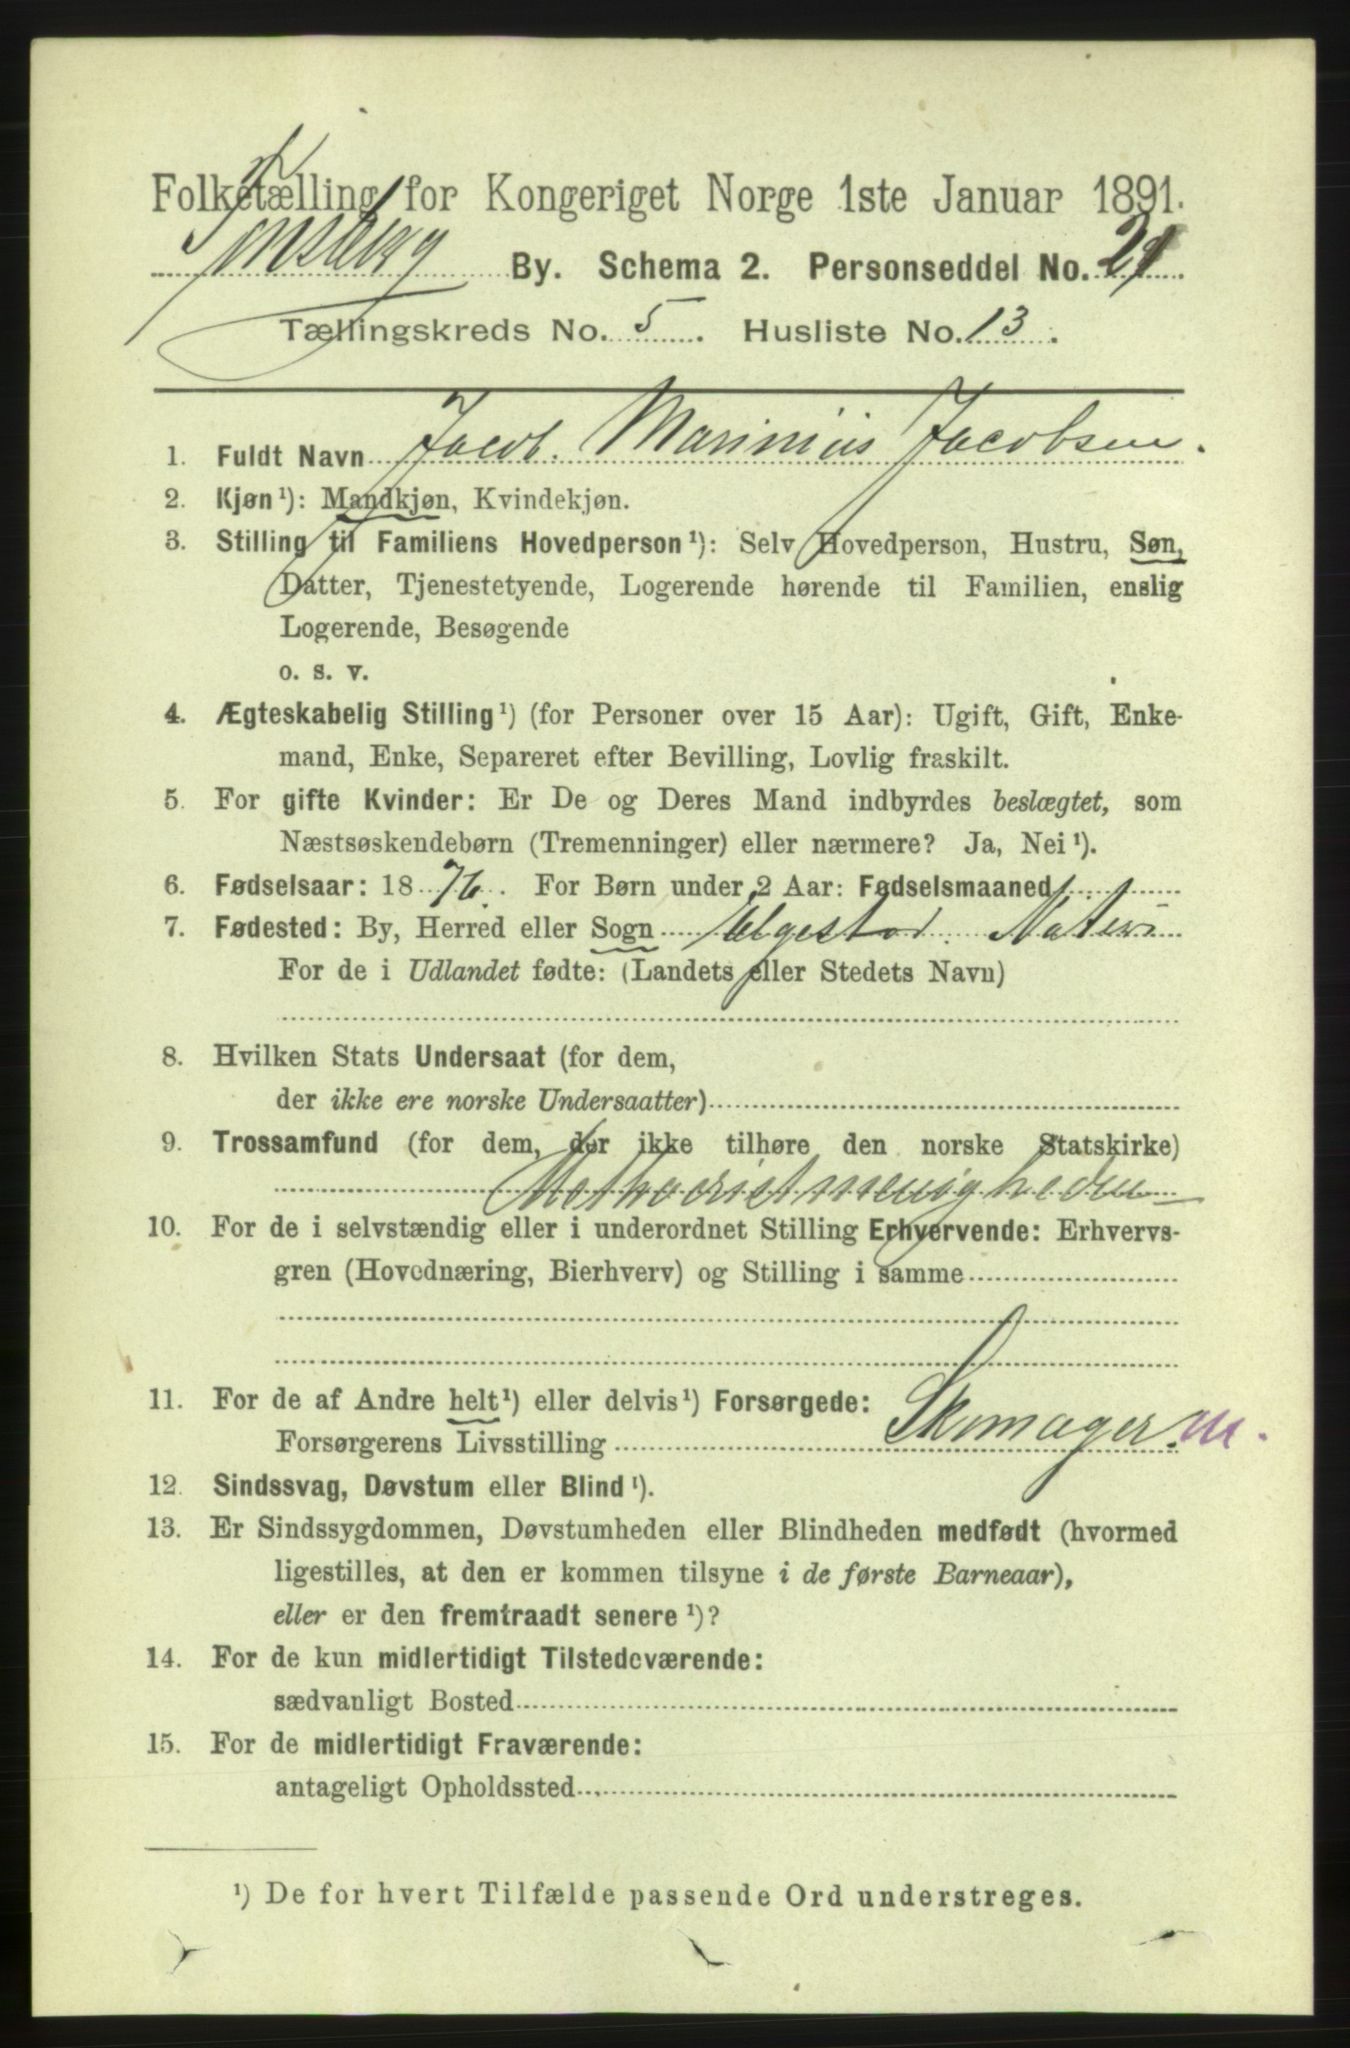 Folketælling for Kongeriget Norge 1ste Januar 1891.
Tønsberg By. Schema 2. Personseddel No. 21.
Tællingskreds No. 5. Husliste No. 13.
1. Fuldt Navn Jacob. Marinius Jacobsen.
2. Kjøn¹): Mandkjøn, Kvindekjøn.
3. Stilling til Familiens Hovedperson¹): Selv Hovedperson, Hustru, Søn,
Datter, Tjenestetyende, Logerende hørende til Familien, enslig
Logerende, Besøgende
o. s. v.
4. Ægteskabelig Stilling¹) (for Personer over 15 Aar): Ugift, Gift, Enke-
mand, Enke, Separeret efter Bevilling, Lovlig fraskilt.
5. For gifte Kvinder: Er De og Deres Mand indbyrdes beslægtet, som
Næstsøskendebørn (Tremenninger) eller nærmere? Ja, Nei¹).
6. Fødselsaar: 1876. For Børn under 2 Aar: Fødselsmaaned
7. Fødested: By, Herred eller Sogn
For de i Udlandet fødte: (Landets eller Stedets Navn)
8. Hvilken Stats Undersaat (for dem,
der ikke ere norske Undersaatter)
9. Trossamfund (for dem, der ikke tilhøre den norske Statskirke)
Methodistmenigheden
10. For de i selvstændig eller i underordnet Stilling Erhvervende: Erhvervs-
gren (Hovednæring, Bierhverv) og Stilling i samme
11. For de af Andre helt¹) eller delvis¹) Forsørgede:
Forsørgerens Livsstilling Skomager. m.
12. Sindssvag, Døvstum eller Blind¹).
13. Er Sindssygdommen, Døvstumheden eller Blindheden medfødt (hvormed
ligestilles, at den er kommen tilsyne i de første Barneaar),
eller er den fremtraadt senere¹)?
14. For de kun midlertidigt Tilstedeværende:
sædvanligt Bosted
15. For de midlertidigt Fraværende:
antageligt Opholdssted
¹) De for hvert Tilfælde passende Ord understreges.